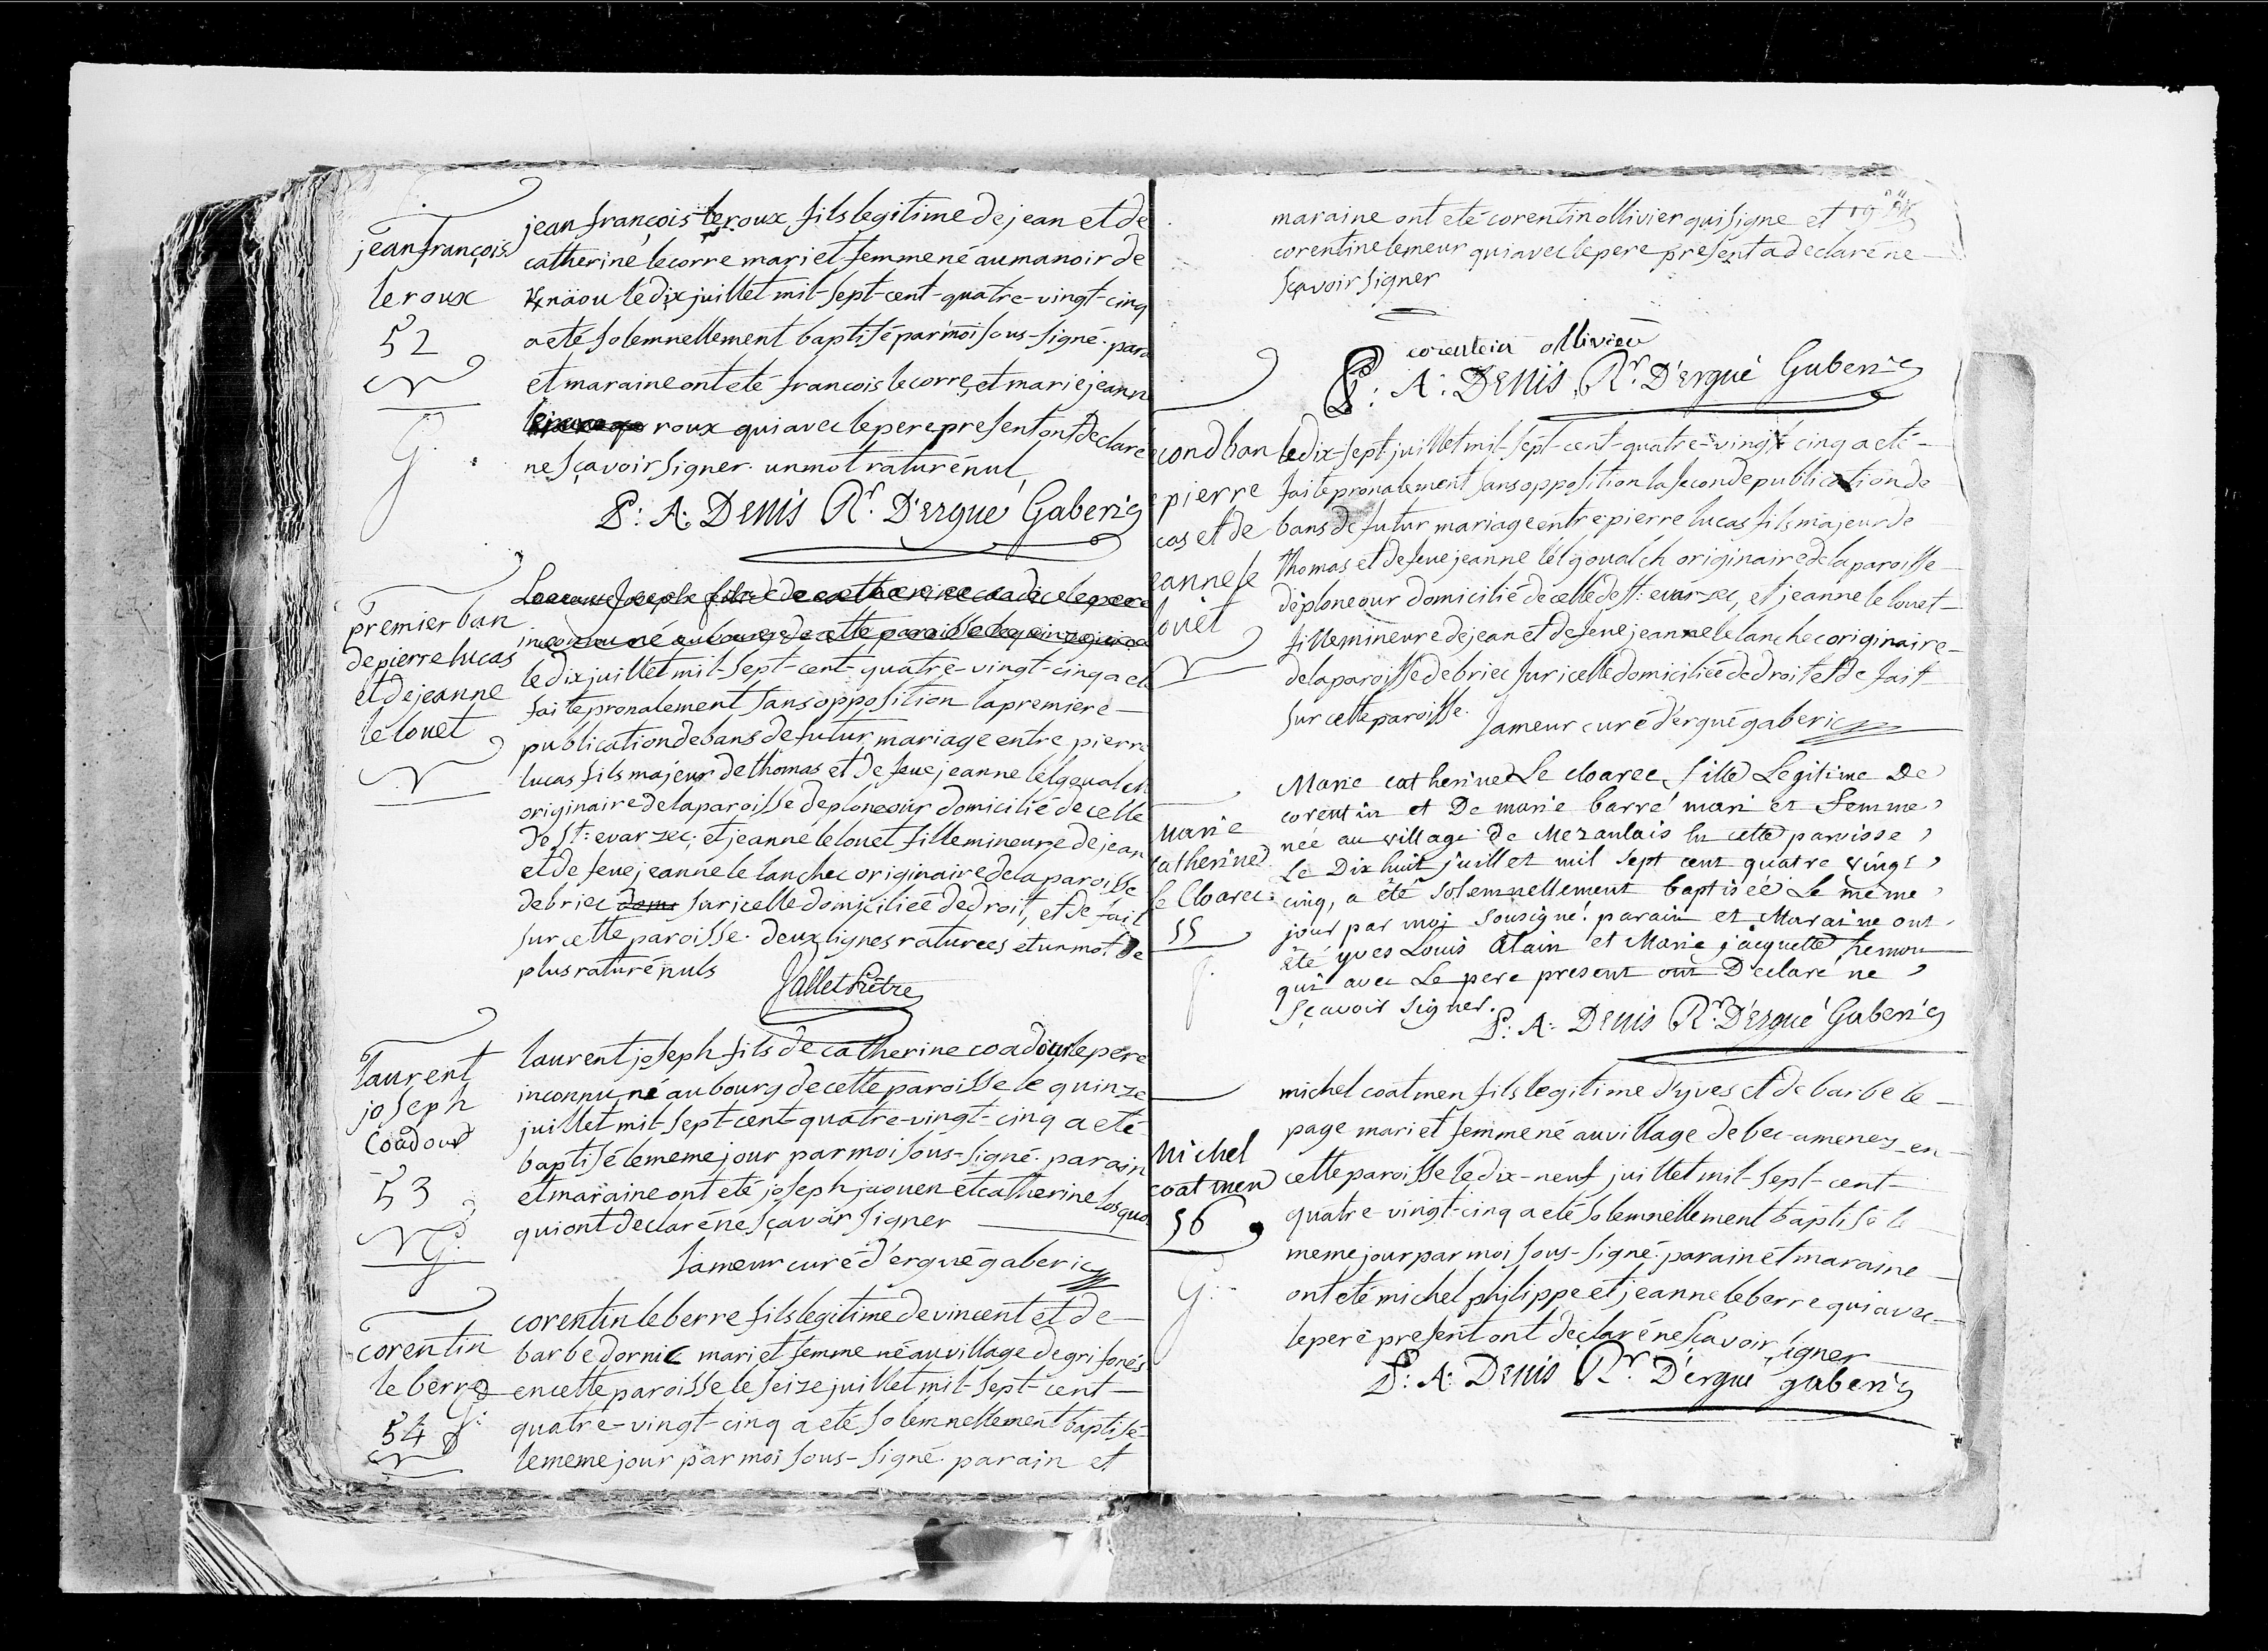 jean françois
le roux
52
G
jean françois le roux fils legitime de jean et de
catherine le corre mari et femme né au manoir de
näou le dix juillet mil-sept-cent-quatre-vingt-cinq
a eté solemnellement baptisé par moi sous-signé. para
et maraine ont eté francois le corre, et marie jeann
roux qui avec le pere present ont declare
ne sçavoir signer. un mot raturé nul
P: A: Denis Rr. D'ergué Gaberic
premier ban
de pierre lucas
et de jeanne
le louet
Laurent Joseph fils de catherine coadic le pere
inconnu né au bourg de cette paroisse le quinze
le dix juillet mil-sept-cent-quatre-vingt-cinq a eté
faite pronalement sans opposition la premiere
publication de bans de futur mariage entre pierre
lucas fils majeur de thomas et de feue jeanne l'elgoualch
originaire de la paroisse de ploneour domicilié de celle
de st: evarzec; et jeanne le louet fille mineure de jean
et de feue jeanne le lanchec originaire de la paroisse
de briec sur icelle domiciliée de droit, et de fait
sur cette paroisse. deux lignes raturées et un mot de
plus raturé nuls
Jallet Prêtre
laurent
joseph
Coadour
53
G
laurent joseph fils de catherine coadour le pere
inconnu né au bourg de cette paroisse le quinze
juillet mil-sept-cent-quatre-vingt-cinq a eté
baptisé le meme jour par moi sous-signé. parain
et maraine ont eté joseph jaouen et catherine
qui ont declaré ne sçavoir signer
Jameur curé d'ergué gaberic
corentin
le berre
54
corentin le berre fils legitime de vincent et de
barbe dornic mari et femme né au village de grifonés
en cette paroisse le seize juillet mil-sept-cent
quatre-vingt-cinq a eté solemnellement baptisé
le meme jour par moi sous-signé. parain et
maraine ont eté corentin ollivier qui signe et
corentine lemeur qui avec le pere present a declaré ne
sçavoir signer
corentin ollivier
P: A: Denis Rr. D'ergué Gaberic
cond ban
pierre
cas et de
eanne le
louet
le dix-sept juillet mil-sept-cent-quatre-vingt cinq a eté
faite pronalement sans opposition la seconde publication de
bans de futur mariage entre pierre lucas fils majeur de
thomas et de feue jeanne l'elgoualch originaire de la paroisse
de ploneour domicilié de celle de st: evarzec, et jeanne le louet
fille mineure de jean et de feue jeanne le lanchec originaire
de la paroisse de briec sur icelle domiciliée de droit et de fait
sur cette paroisse.
Jameur curé d'ergué gaberic
Marie
Catherine
le Cloarec
55
Marie catherine Le cloarec fille Legitime De
corentin et De marie barré mari et femme
née au village de Mezanlais en cette paroisse
le Dix huit juillet mil sept cent quatre vingt
cinq, a êté solemnellement baptisée Le même
jour par moi sousigné. parain et Maraine ont
êté yves Louis Alain et Marie jacquette hemon
qui avec Le pere present ont Declaré ne
sçavoir signer.
P: A: Denis Rr. D'ergué Gaberic
Michel
coatmen
56
G
michel coatmen fils legitime d'yves et de barbe le
page mari et femme né au village de bec-amenez en
cette paroisse le dix-neuf juillet mil-sept-cent
quatre-vingt-cinq a eté solemnellement baptisé le
meme jour par moi sous-signé. parain et maraine
ont eté michel philippe et jeanne le berre qui avec
le pere present ont declaré ne sçavoir signer
P: A: Denis Rr. D'ergué gaberic